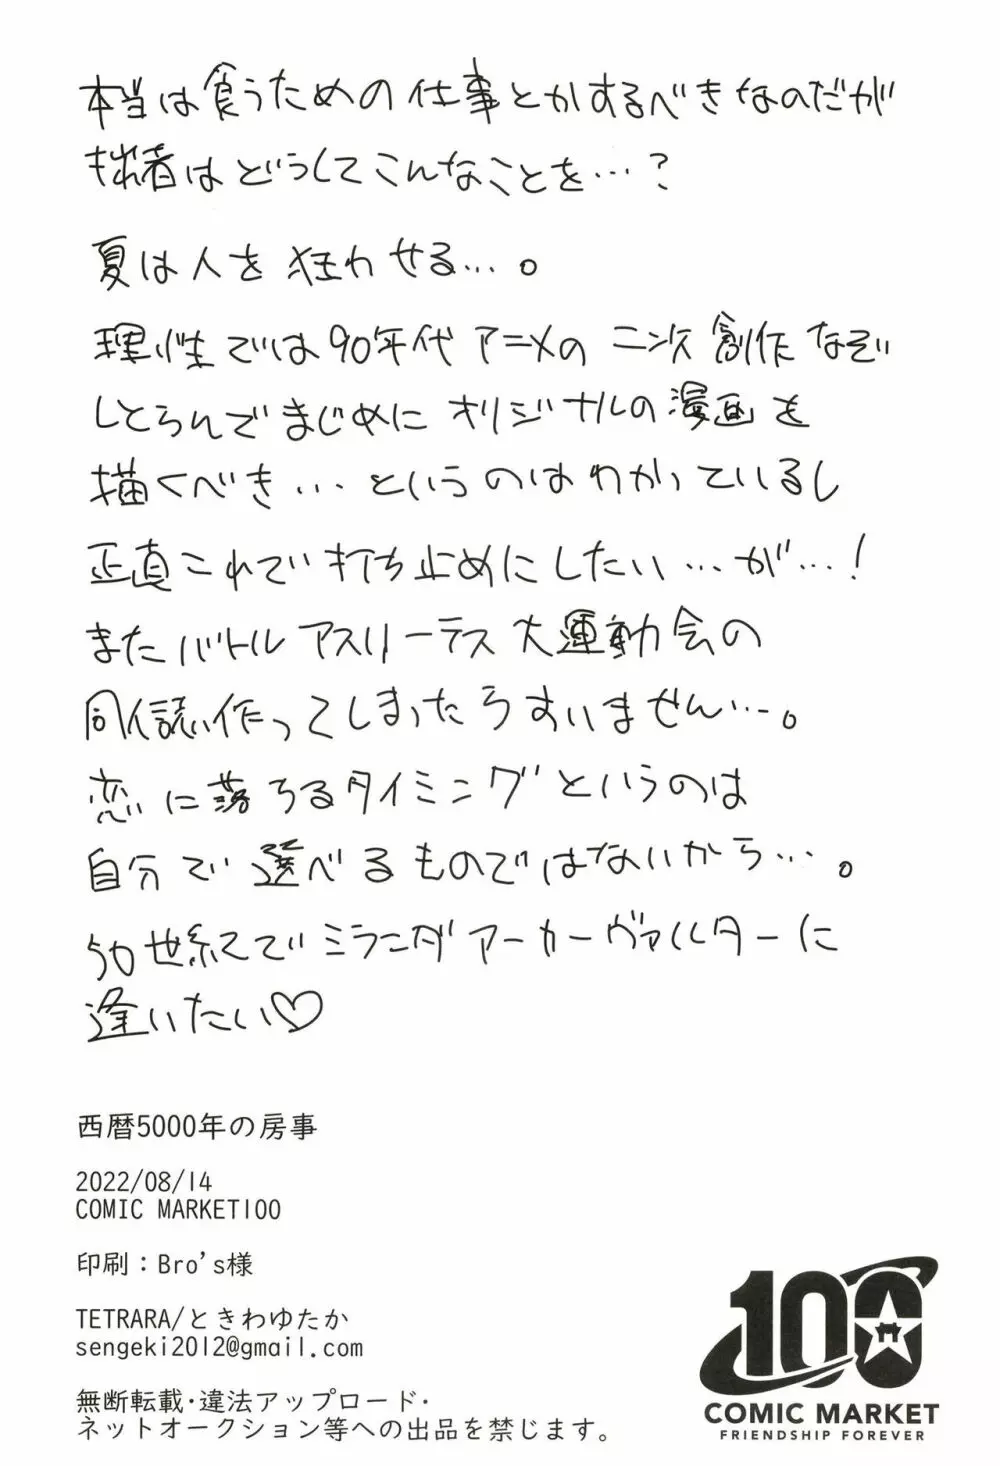 本当は食うための仕事とかするべきなのだが
拙者はどうしてこんなことを…?
夏は人を狂わせる…。
理性では90年代アニメの二次創作なぞ
しとらんでまじめにオリジナルの漫画を
描くべき…というのはわかっているし
正直これで打ち止めにしたい…が…!
またバトルアスリーテス大運動会の
同人誌作ってしまったらすいません…。
恋に落ちるタイミングというのは
自分で選べるものではないから…。
50世紀でミランダアーカーヴァルターに
逢いたい♡
西暦5000年の房事
2022/08/14
COMIC MARKET100
印刷：Bro's様
TETRARA/ときわゆたか
sengeki2012@gmail.com
無断転載･違法アップロード･
ネットオークション等への出品を禁じます。
100
COMIC MARKET
FRIENDSHIP FOREVER